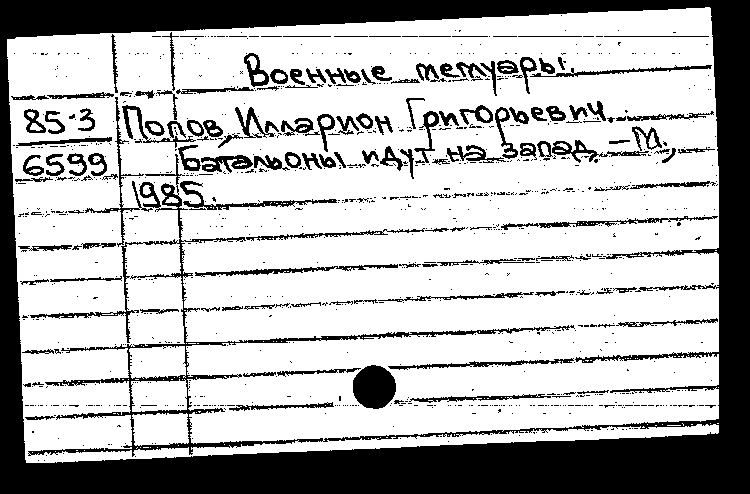 Военные мемуары.
85-3
6599
Попов, Илларион Григорьевич.
Батальоны идут на запад, – М.,
1985.